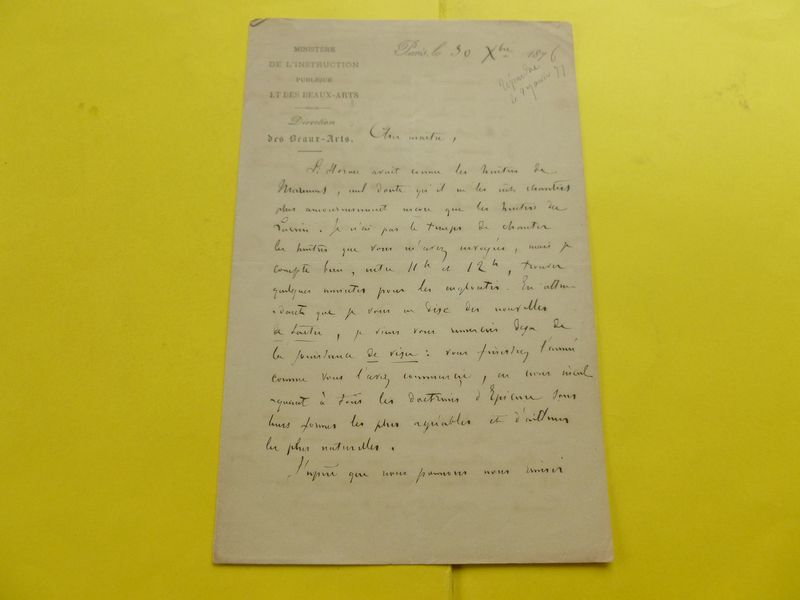 MINISTÈRE
DE L'INSTRUCTION
PUBLIQUE
ET DES BEAUX-ARTS
Direction
des Beaux-Arts.
Paris, le 30 Xbre 1876
répondu
le 9 janvier 77
Cher maître,
Si Horace avait connu les huîtres de
Marennes, nul doute qu'il ne les eût chantées
plus amoureusement encore que les huîtres du
Lucrin. Je n'ai pas le temps de chanter
les huîtres que vous m'avez envoyées, mais je
compte bien, entre 11h et 12h, trouver
quelques minutes pour les engloutir. En atten-
-dant que je vous en dise des nouvelles
de gustu, je veux vous remercier de
la jouissance de visu : vous finissez l'année
comme vous l'avez commencée, en nous incul-
-quant à tous les doctrines d'Epicure sous
leurs formes les plus agréables et d'ailleurs
les plus naturelles.
J'espère que nous pourrons nous